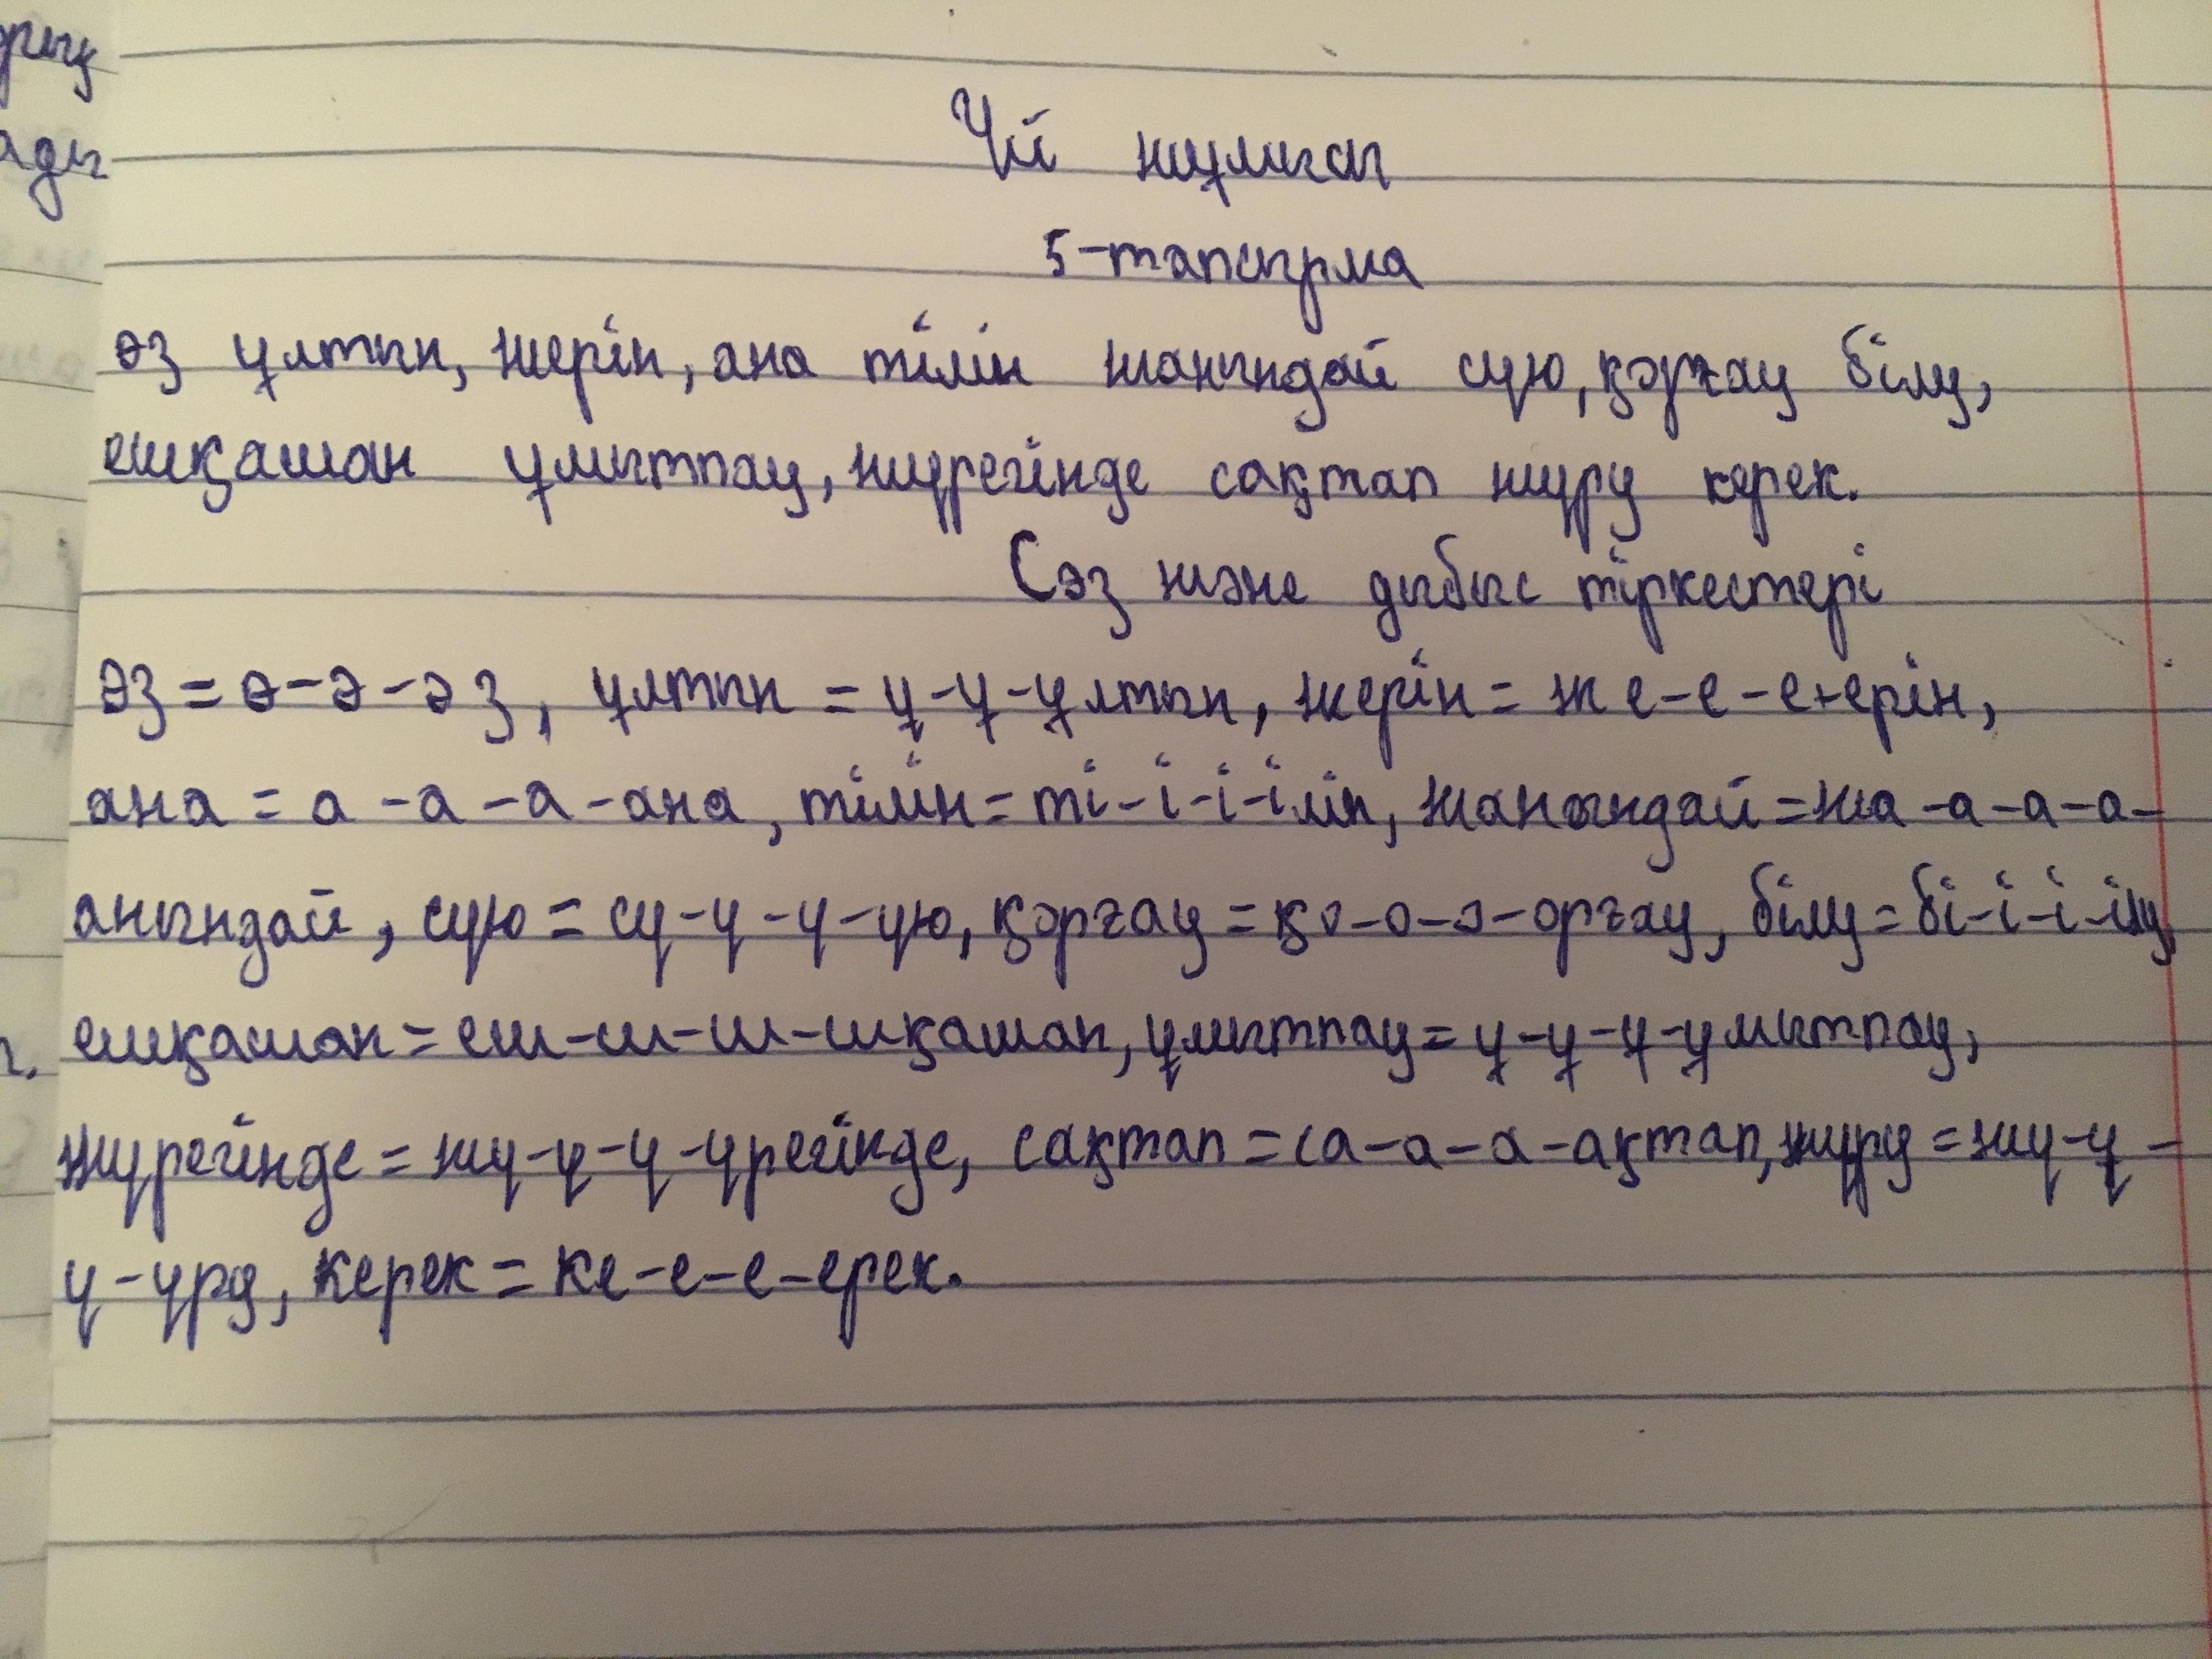 Үй жұмысы
5-тапсырма
өз ұлтын, жерін, ана тілін жанындай сүю, қорғау білу,
ешқашан ұмытпау, жүрегінде сақтап жүру керек.
Сөз және дыбыс тіркестері
Өз = ө-ө-ө з, ұлтын = ұ-ұ-ұлтын, жерін = ж е-е-е-ерін,
ана = а-а-а-ана, тілін = ті-і-і-ілін, жанындай = жа-а-а-а-
анындай, сүю = сү-ү-ү-үю, қорғау = қо-о-о-орғау, білу = бі-і-і-ілу,
ешқашан = еш-ш-ш-шқашан, ұмытпау = ұ-ұ-ұ-ұмытпау,
жүрегінде = жү-ү-ү-үрегінде, сақтап = са-а-а-ақтап, жүру = жү-ү-
ү-үру, керек = ке-е-е-ерек.